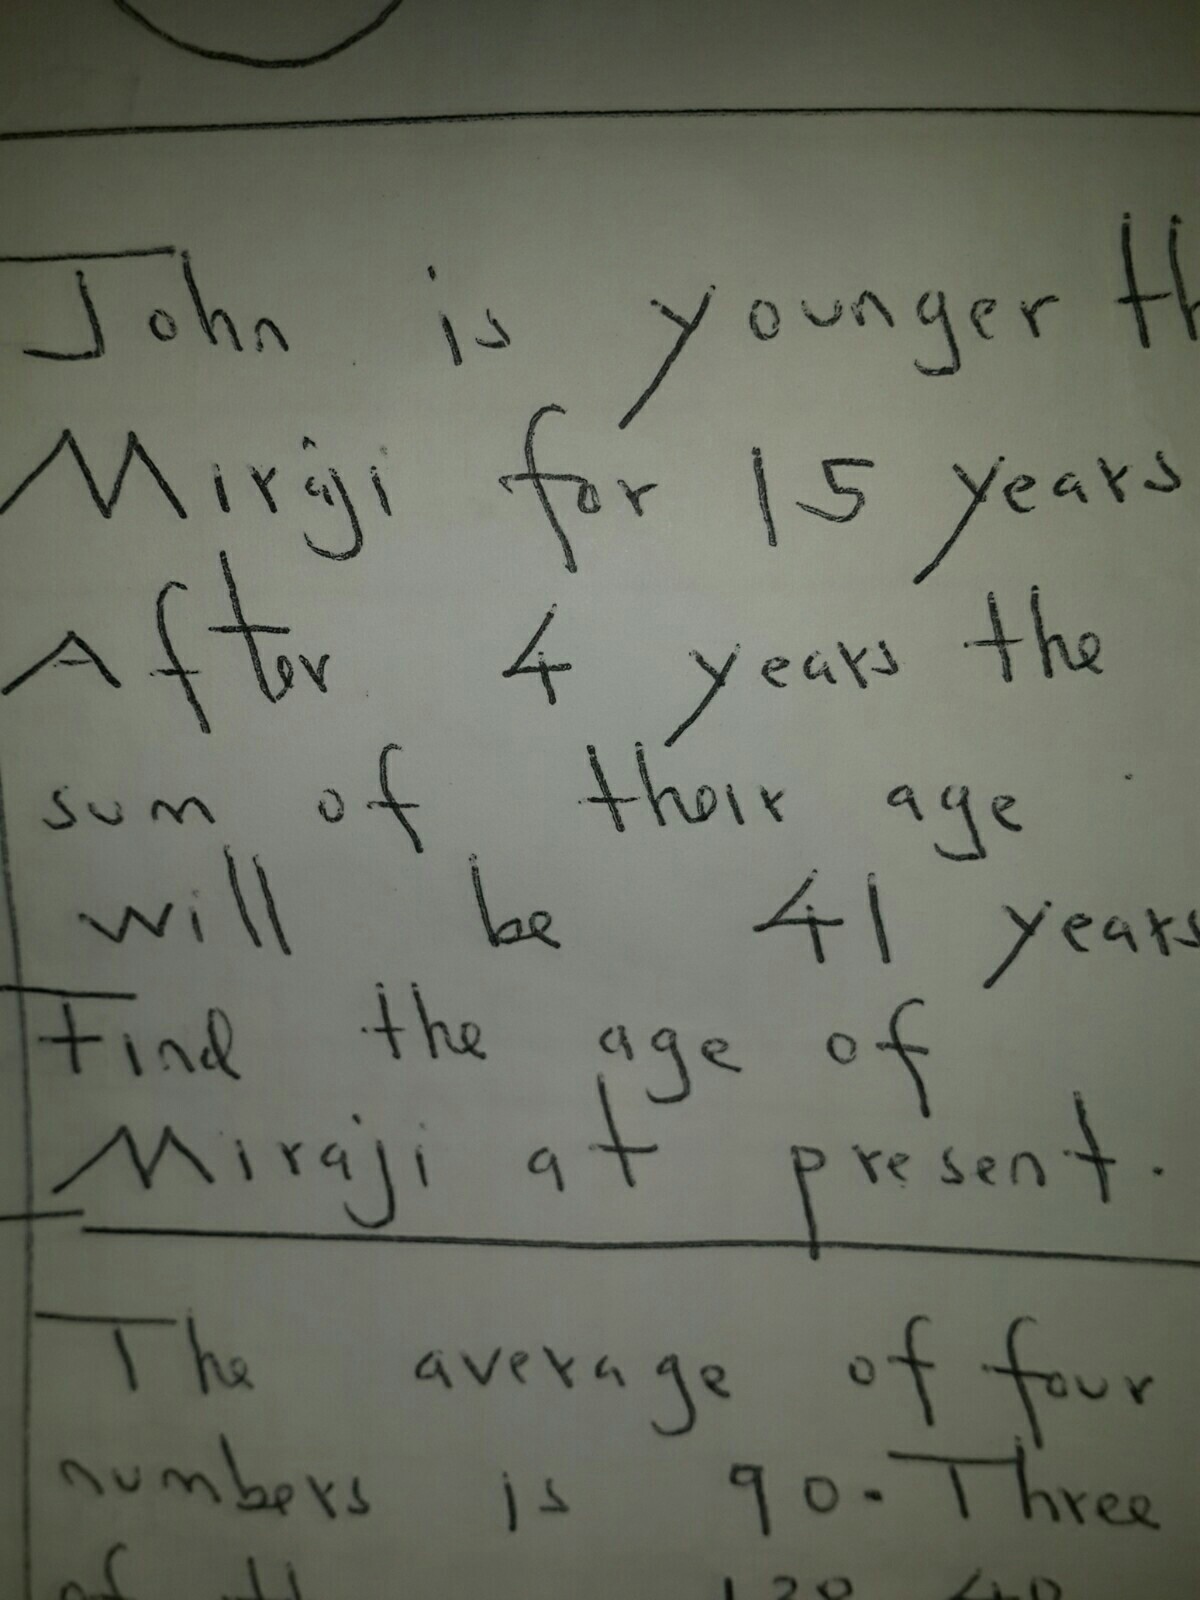 John is younger th
Miraji for 15 years
After 4 years the
sum of their age
will be 41 years
Find the age of
Miraji at present.
The average of four
numbers is 90. Three
of